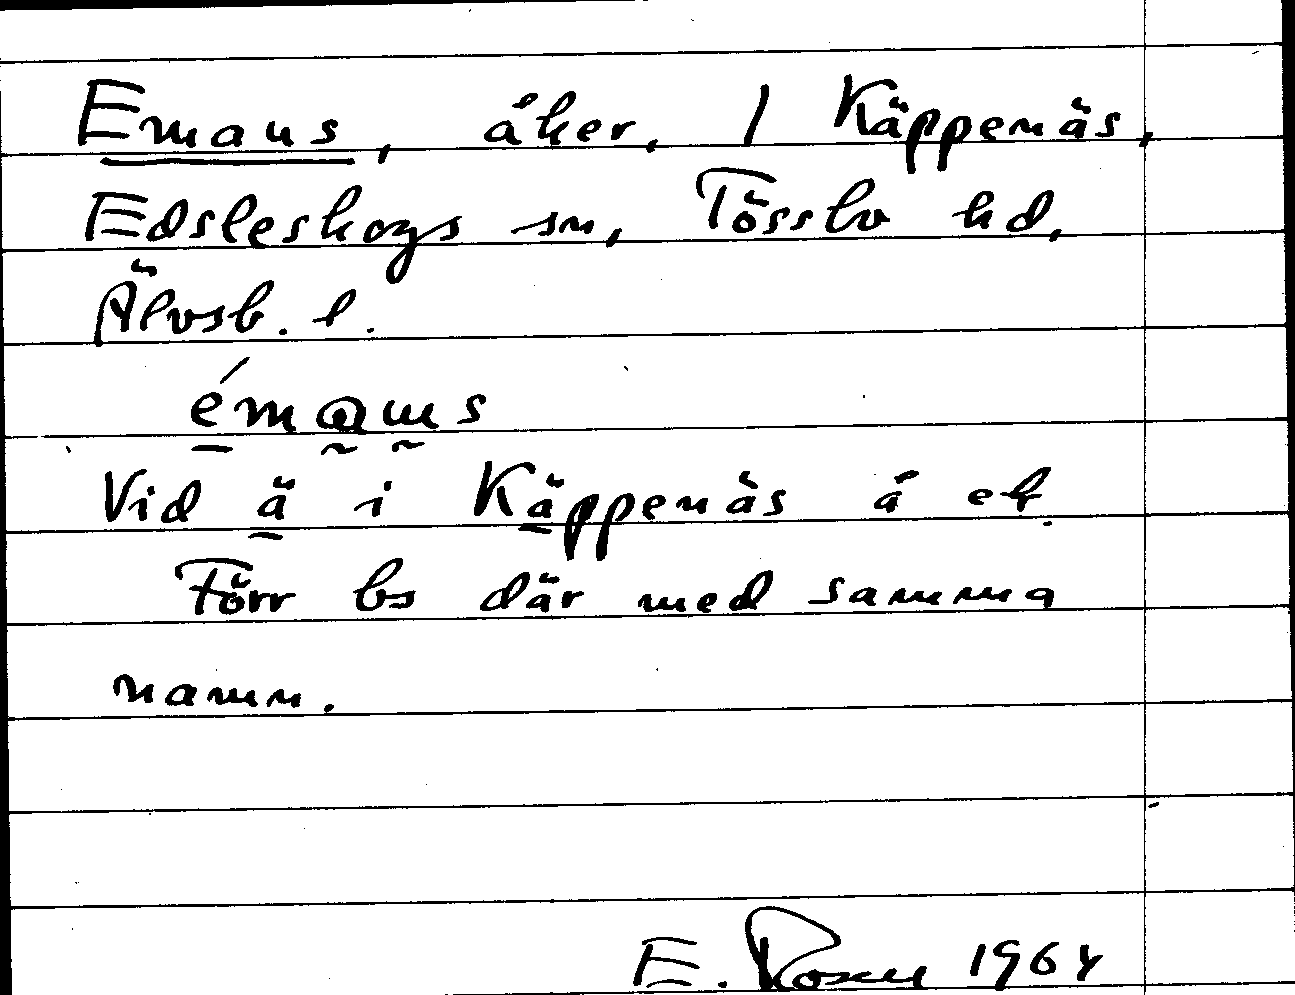 Emaus, åker, 1 Käppenäs,
Edsleskogs sn, Tössbo hd,
Älvsb. l.
émaus
Vid ä i Käppenäs å ek.
Förr bs där med samma
namn.
E. Rosen 1964